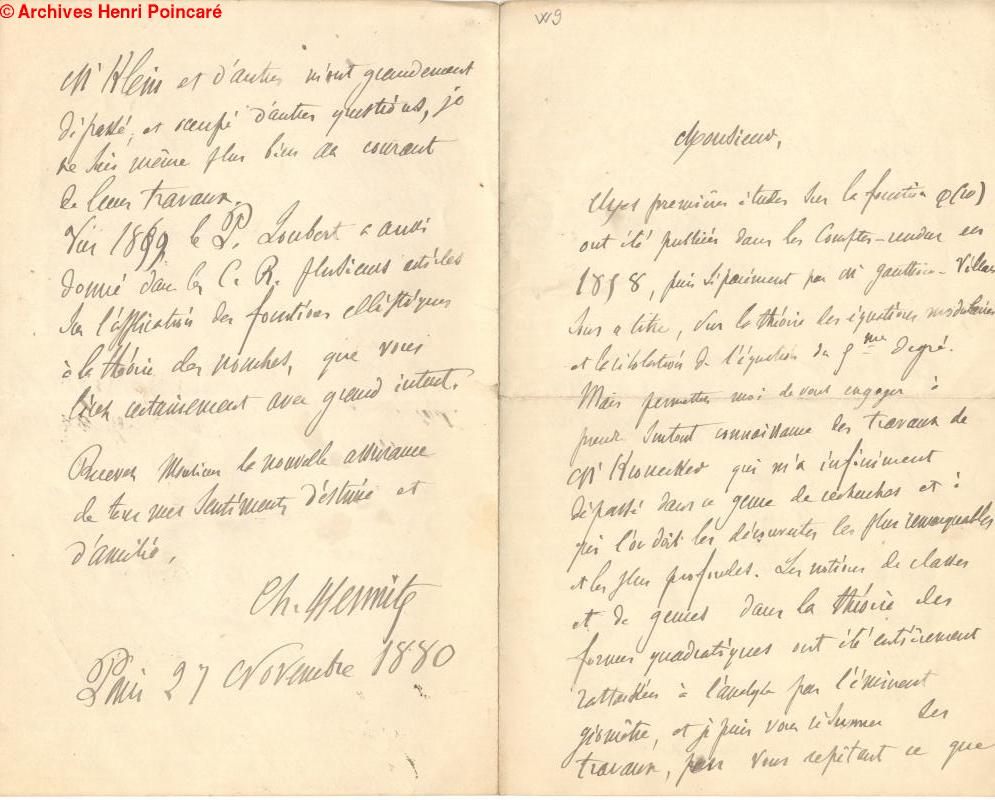 © Archives Henri Poincaré
W9
Monsieur,
Mes premières études sur la fonction φ(ω)
ont été publiées dans les Comptes-rendus en
1858, puis séparément par Mr Gauthier-Villars
sous ce titre, Sur la théorie des équations modulaires
et la résolution de l'équation du 5me degré.
Mais permettez moi de vous engager à
prendre surtout connaissance des travaux de
Mr Kronecker qui m'a infiniment
dépassé dans ce genre de recherches et à
qui l'on doit les découvertes les plus remarquables
et les plus profondes. Les notions de classes
et de genres dans la théorie des
formes quadratiques ont été entièrement
rattachées à l'analyse par l'éminent
géomètre, et je puis vous résumer ses
travaux, vous répétant ce que
Mr Klein et d'autres m'ont grandement
dépassé, et occupé d'autres questions, je
ne suis même plus bien au courant
de leurs travaux.
Vers 1859 le P. Joubert a aussi
donné dans les C. R. plusieurs articles
sur l'application des fonctions elliptiques
à la théorie des nombres, que vous
lirez certainement avec grand intérêt.
Recevez Monsieur la nouvelle assurance
de tous mes sentiments d'estime et
d'amitié,
Ch. Hermite
Paris 27 Novembre 1880